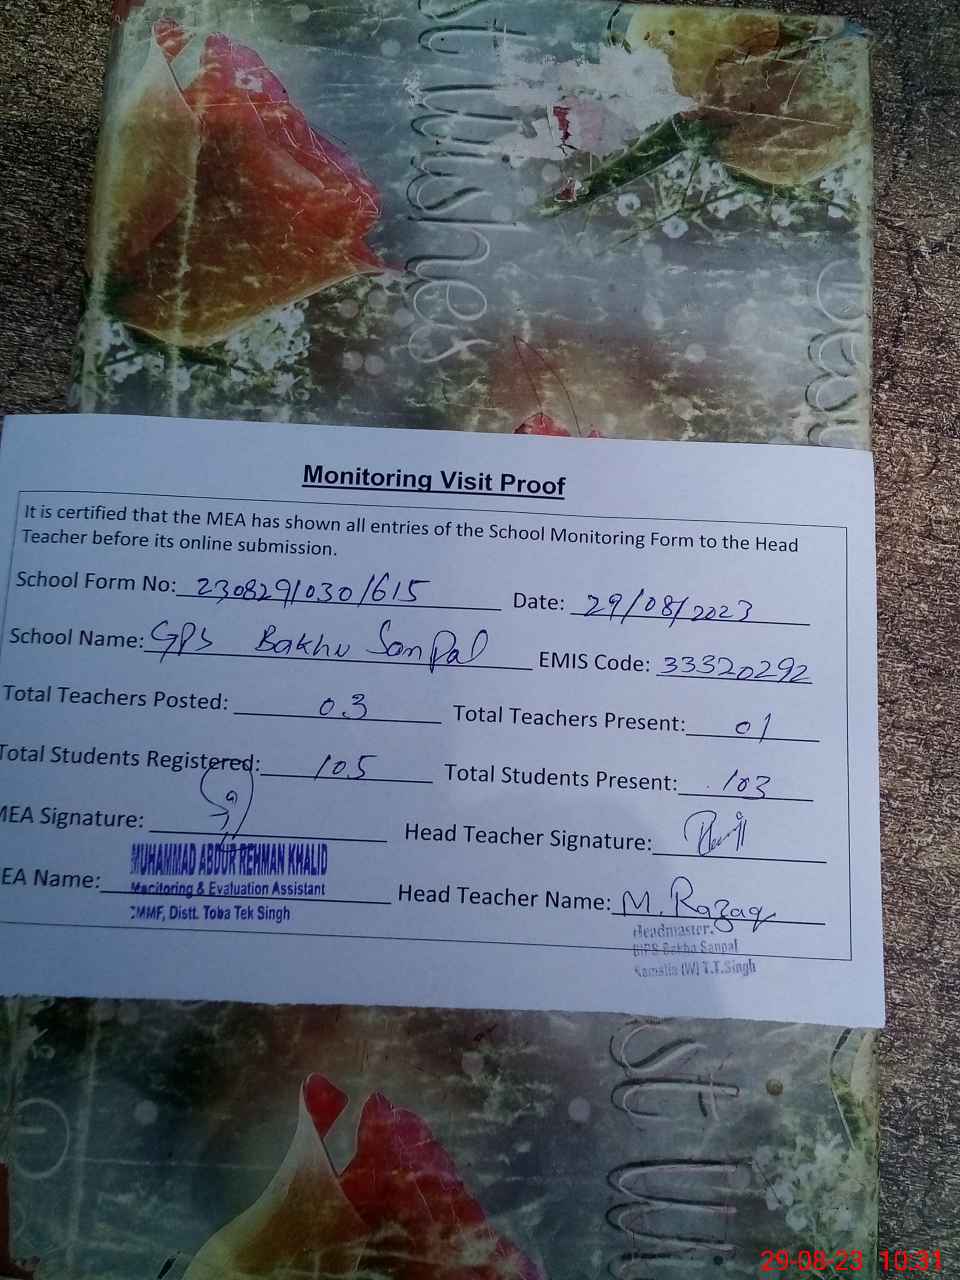 st wishes
Monitoring Visit Proof
It is certified that the MEA has shown all entries of the School Monitoring Form to the Head
Teacher before its online submission.
School Form No: 230829/030/615 Date: 29/08/2023
School Name: GPS Bakhu Sanpal EMIS Code: 33320292
Total Teachers Posted: 03 Total Teachers Present: 01
Total Students Registered: 105 Total Students Present: 103
MEA Signature: Head Teacher Signature:
EA Name: MUHAMMAD ABDUR REHMAN KHALID
Monitoring & Evaluation Assistant
CMMF, Distt. Toba Tek Singh
Head Teacher Name: M. Razaq
Headmaster.
GPS Bakhu Sanpal
Kamalia (W) T.T.Singh
st wi
29-08-23 10:31